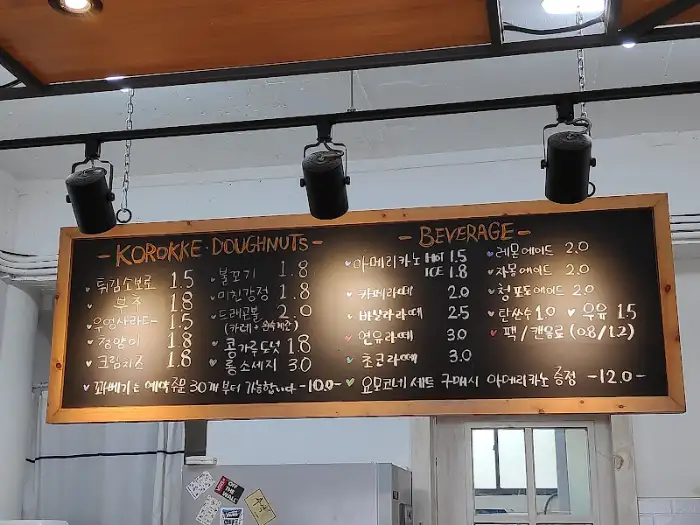 - KOROKKE · DOUGHNUTS -
튀김소보로 1.5
부추 1.8
우엉사라다 1.5
청양이 1.8
크림치즈 1.8
불꼬기 1.8
미친강정 1.8
드래곤볼 2.0
콩가루도넛 1.8
롱소세지 3.0
꽈베기는 예약주문 30개 부터 가능합니다 -10.0-
- BEVERAGE -
아메리카노 HOT 1.5
ICE 1.8
카페라떼 2.0
바닐라라떼 2.5
연유라떼 3.0
초코라떼 3.0
레몬에이드 2.0
자몽에이드 2.0
청포도에이드 2.0
탄산수 1.0 우유 1.5
팩/캔음료 (0.8/1.2)
요모코네 세트 구매시 아메리카노 증정 -12.0-
OFF THE WALL